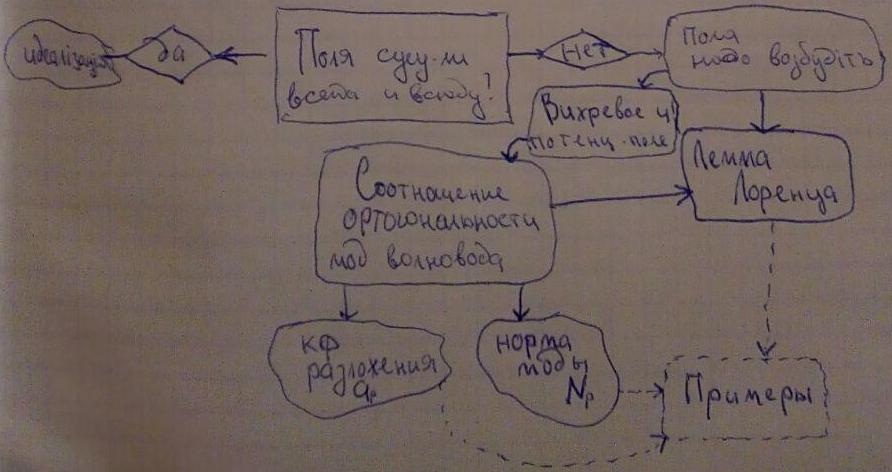 идеализация
да
Поля сущ-ли
всегда и всюду?
Нет
Поля
надо возбудить
Вихревое и
потенц. поле
Соотношение
ортогональности
мод волновода
Лемма
Лоренца
кф
разложения
ap
норма
моды
Np
Примеры